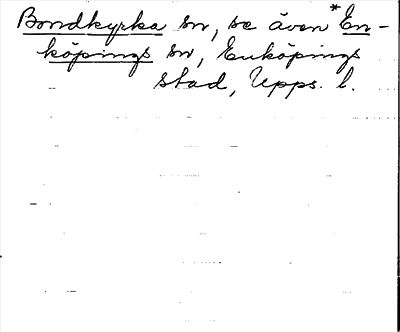 Bondkyrka sn, se även *En-
köpings sn, Enköpings
stad, Upps. l.